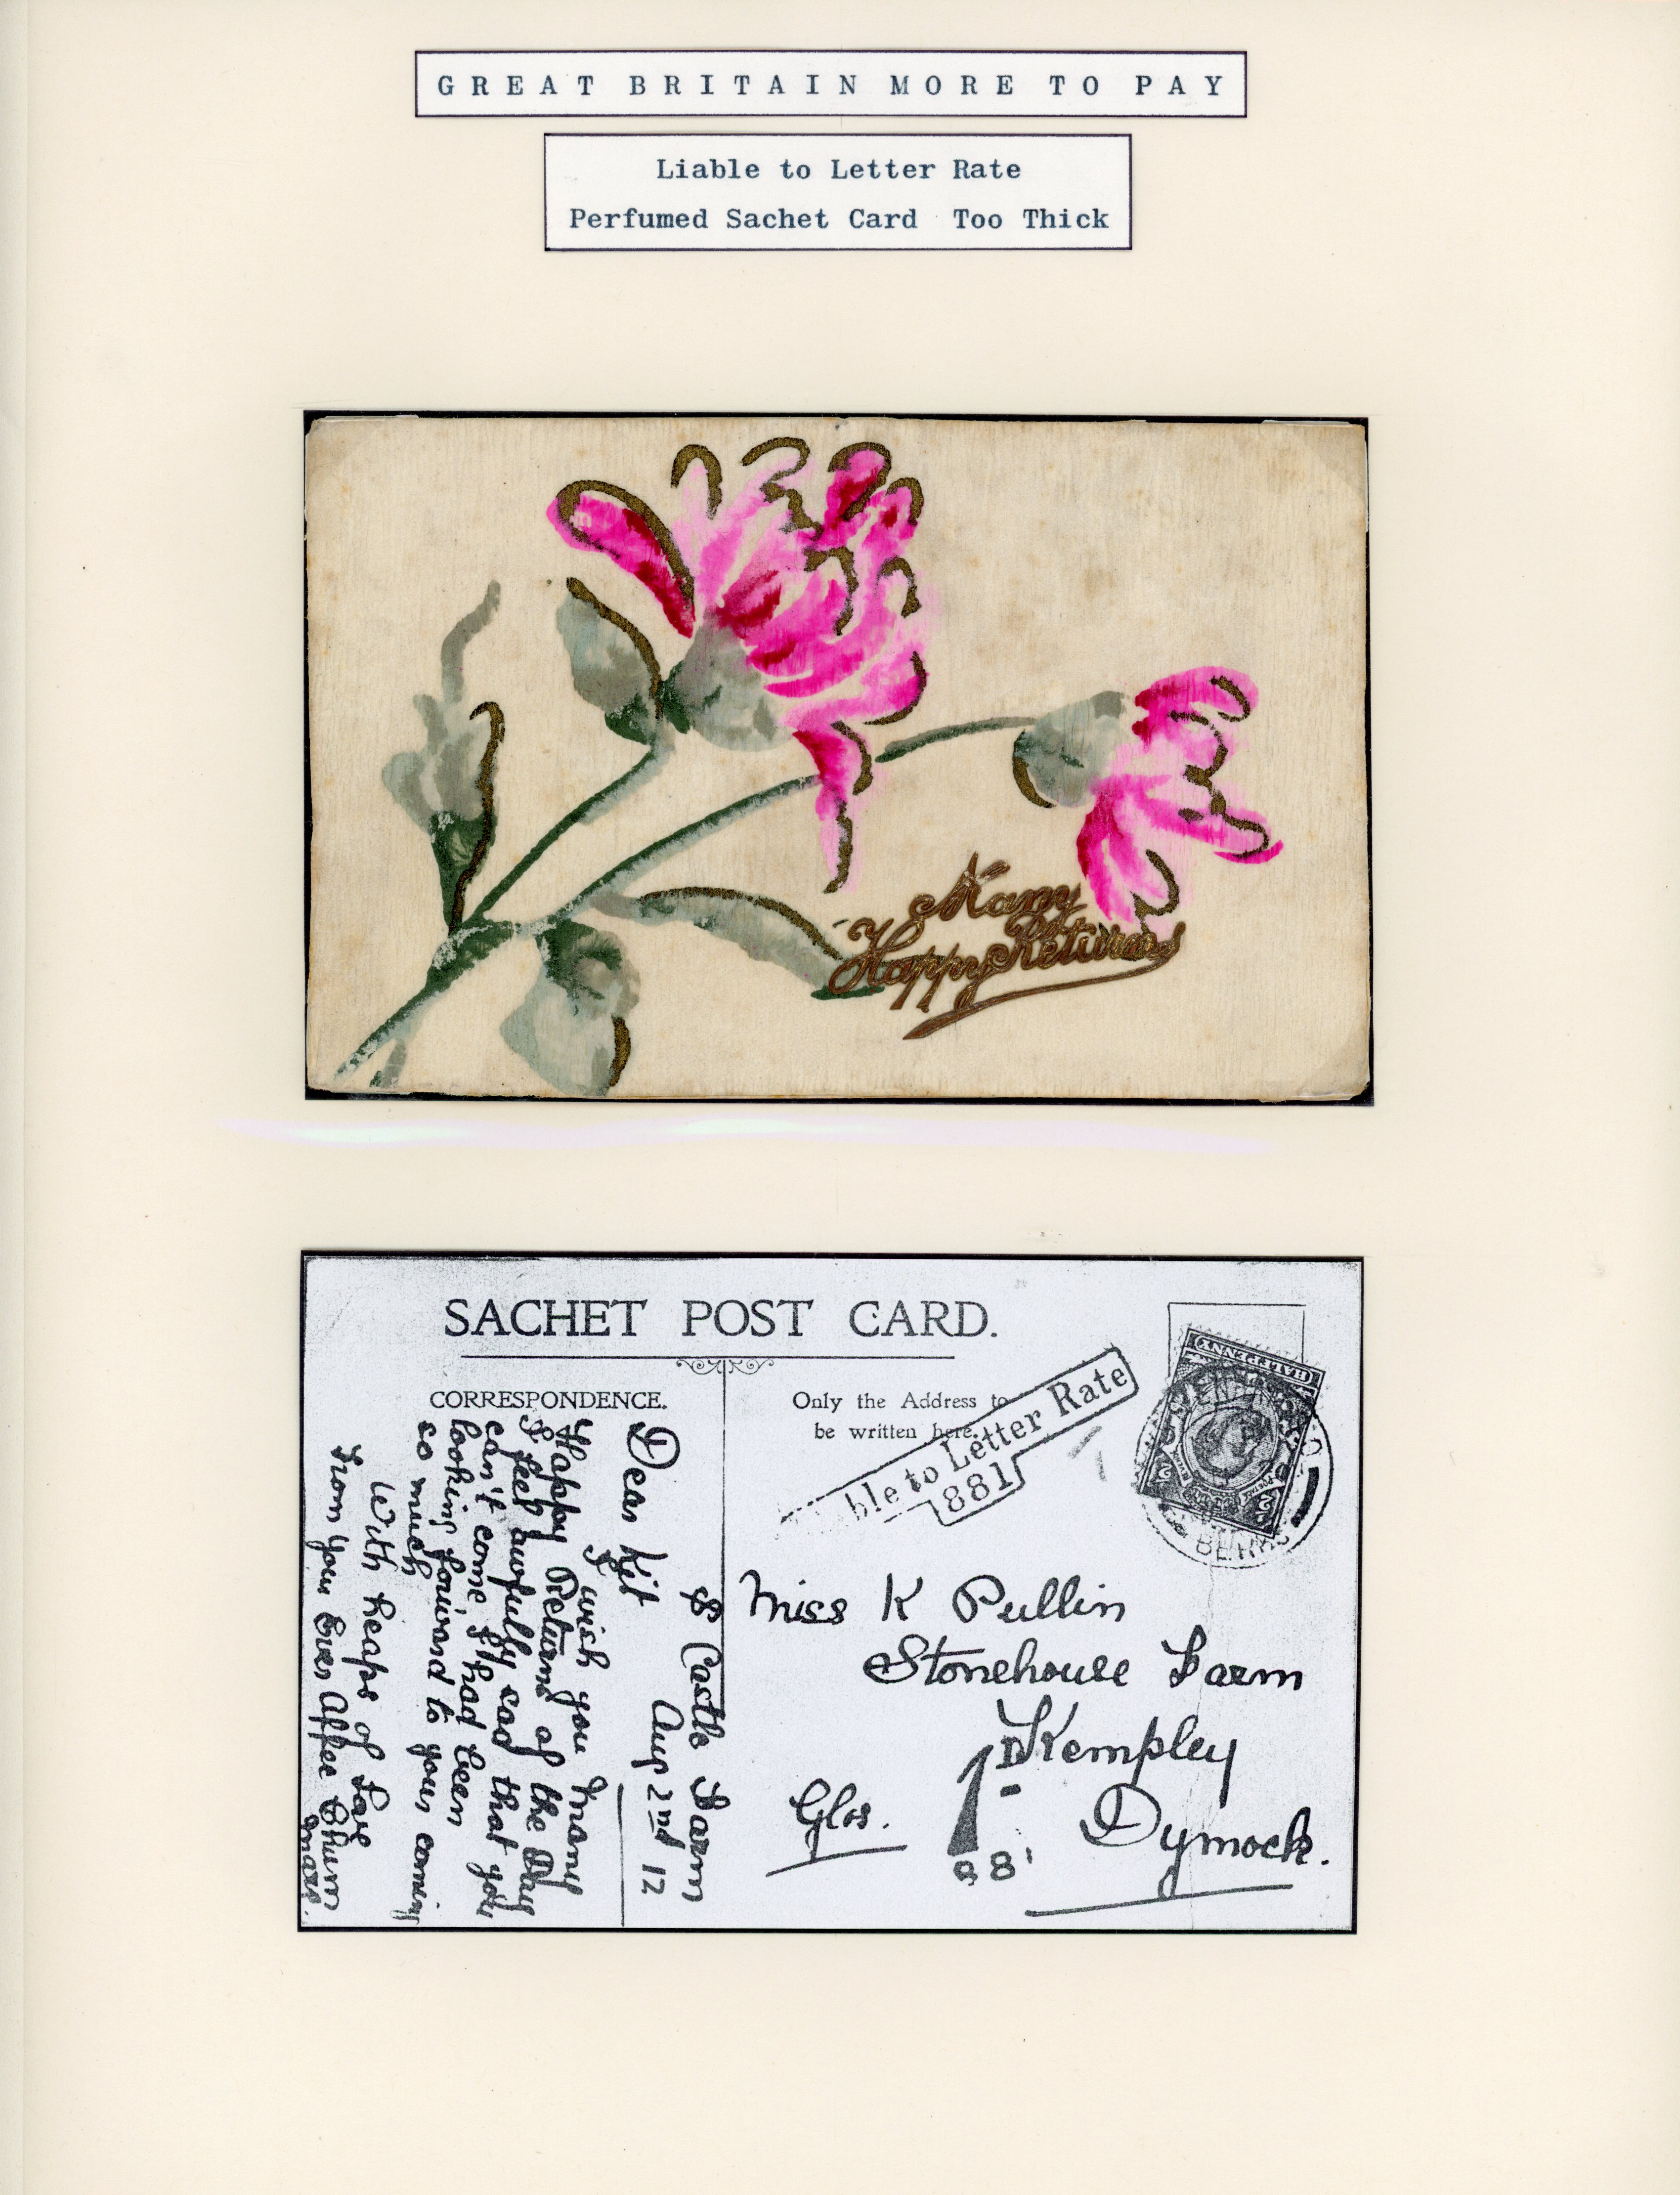 GREAT BRITAIN MORE TO PAY
Liable to Letter Rate
Perfumed Sachet Card Too Thick
Many
Happy Returns
SACHET POST CARD.
CORRESPONDENCE.
Only the Address to
be written here.
ble to Letter Rate
881
HALFPENNY
BERKS
Castle Farm
Aug 2nd 12
Dear Kit
I wish you Many
Happy Returns of the Day
I feel awfully sad that you
can't come, I had been
looking forward to your coming
so much
With heaps of Love
From your Ever Affec Chum
Miss K Pullin
Stonehouse Farm
Kempley
Dymock.
Glos.
1D